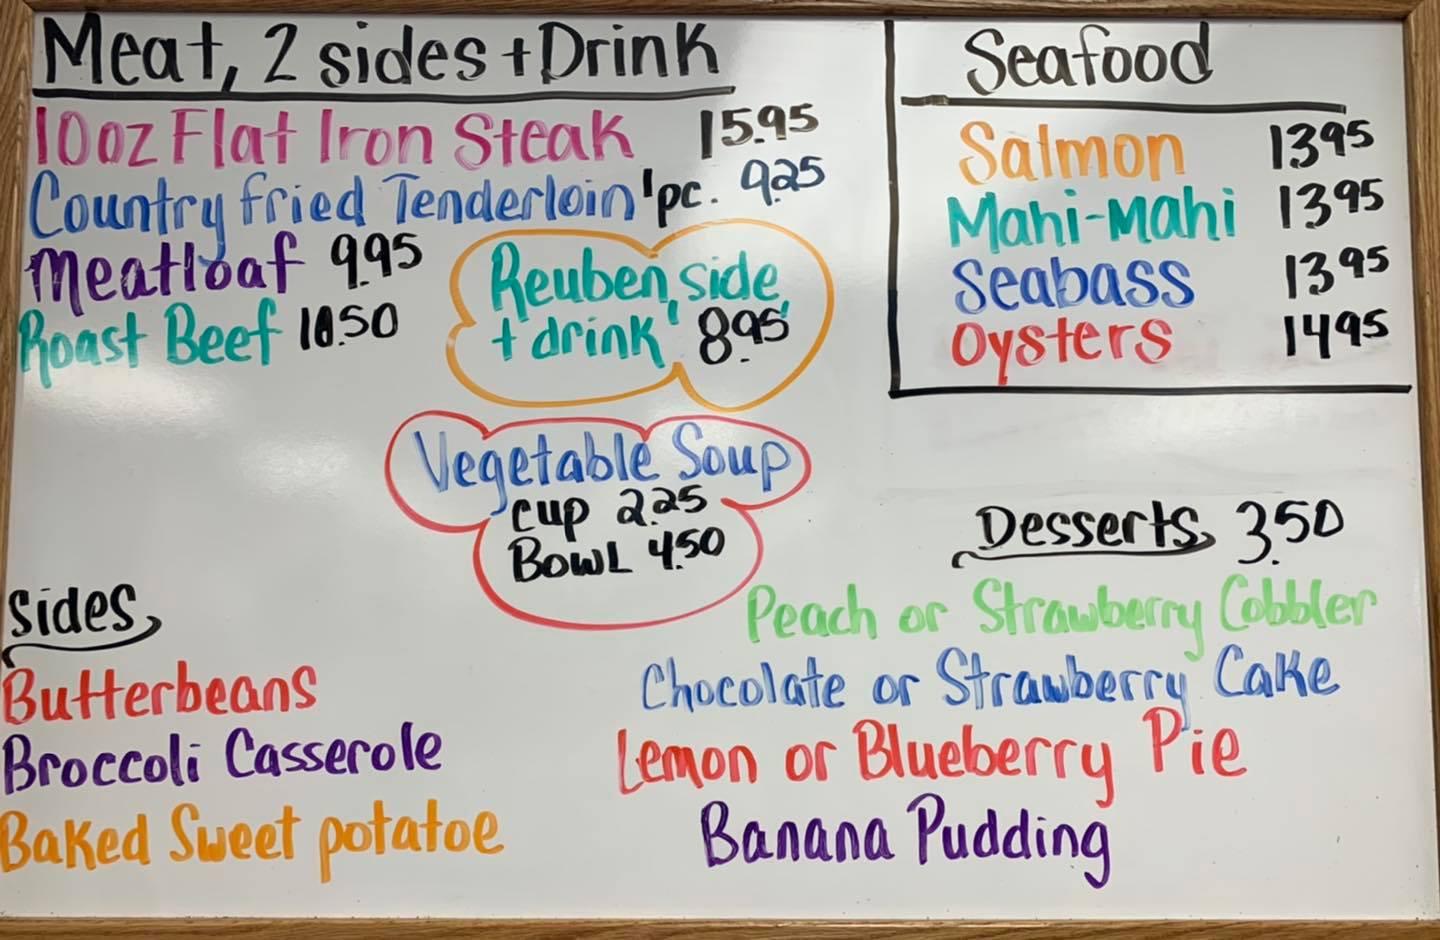 Meat, 2 sides + Drink
10oz Flat Iron Steak 15.95
Country fried Tenderloin 1pc. 9.25
Meatloaf 9.95
Roast Beef 10.50
Reuben, side,
+ drink 8.95
Vegetable Soup
cup 2.25
BOWL 4.50
Seafood
Salmon 13 95
Mahi-Mahi 13 95
Seabass 13 95
Oysters 14 95
sides
Butterbeans
Broccoli Casserole
Baked Sweet potatoe
Desserts 3.50
Peach or Strawberry Cobbler
Chocolate or Strawberry Cake
Lemon or Blueberry Pie
Banana Pudding